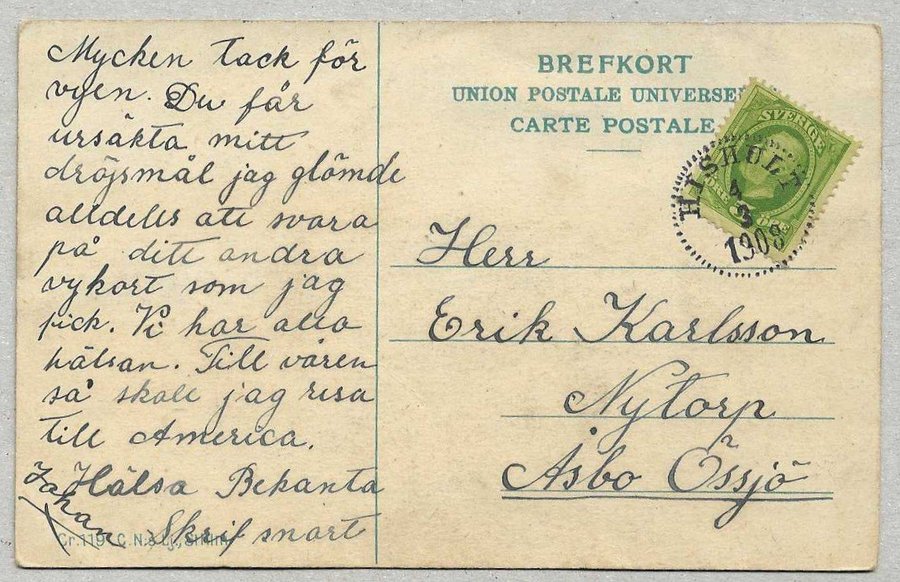 Mycken tack för
vyen. Du får
ursäkta mitt
dröjsmål jag glömde
alldeles att svara
på ditt andra
vykort som jag
fick. Vi har alla
hälsan. Till våren
så skall jag resa
till America.
Hälsa Bekanta
Johan Skrif snart
Cr.119 C. N:s Lj., Sthlm
BREFKORT
UNION POSTALE UNIVERSE
CARTE POSTALE
SVERIGE
HISHULT
4
3
1908
Herr
Erik Karlsson
Nytorp
Åsbo Össjö